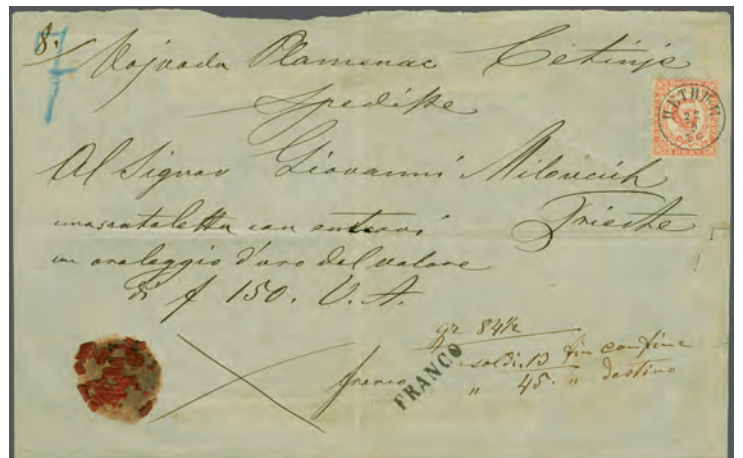 8.
7
Vojvoda Plamenac Cetinje
Spediſse
Al Signor Giovanni Milovcich
Trieste
una scatoletta con entrovi
un orologgio d'oro del valore
di f 150. V. A.
gr 84½
soldi 13 fin confine
" 45. " destino
franco
FRANCO